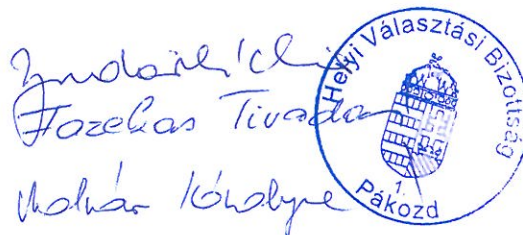 Fazekas Tivadar
Molnár Károlyné
Helyi Választási Bizottság
1.
Pákozd